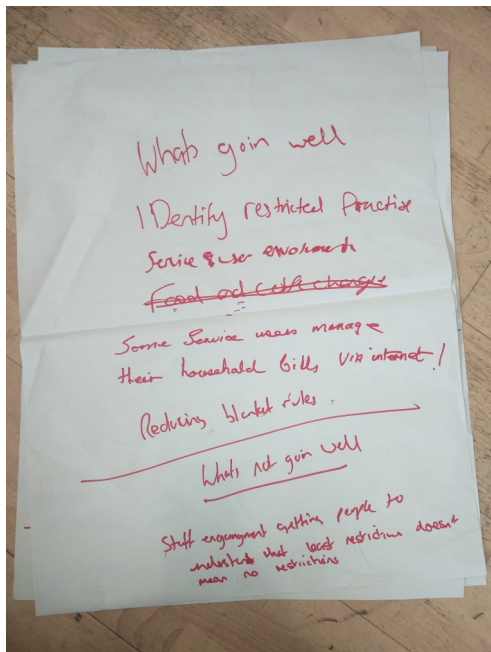 Whats goin well
IDentify restricted Practise
Service user
Food and
Some Service users manage
their household bills via internet!
Reducing blanket rules.
Whats not goin well
Staff engungment getting people to
understand that least restriction doesnt
mean no restrictions